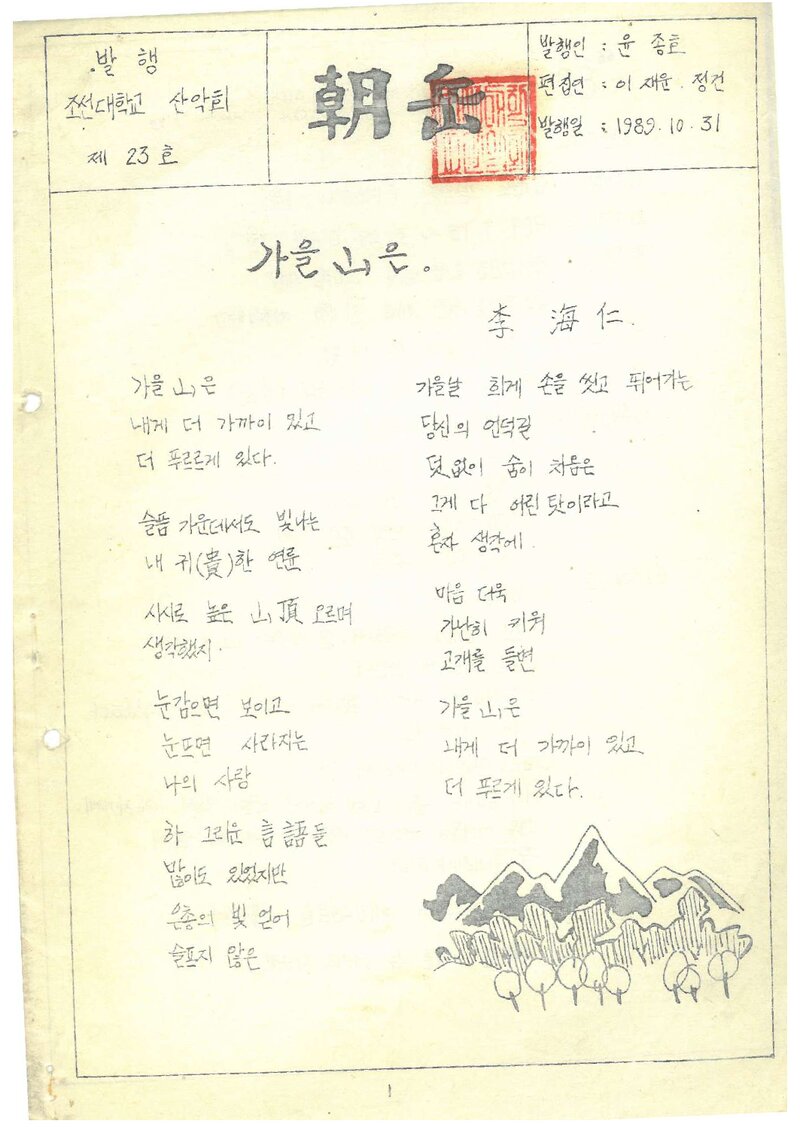 발행
조선대학교 산악회
제 23 호
朝岳
발행인 : 윤종효
편집연 : 이재윤. 정건
발행일 : 1989. 10. 31
가을 山은.
李海仁.
가을 山은
내게 더 가까이 있고
더 푸르르게 있다.
슬픔 가운데서도 빛나는
내 귀(貴)한 연륜
사시로 높은 山頂 오르며
생각했지.
눈감으면 보이고
눈뜨면 사라지는
나의 사랑
하 그리운 言語들
많이도 있었지만
은총의 빛 얻어
슬프지 않은
가을날 희게 손을 씻고 뛰어가는
당신의 언덕길
덧없이 숨이 차음은
그게 다 어린 탓이라고
혼자 생각에.
마음 더욱
가난히 키워
고개를 들면
가을 山은
내게 더 가까이 있고
더 푸르게 있다.
1